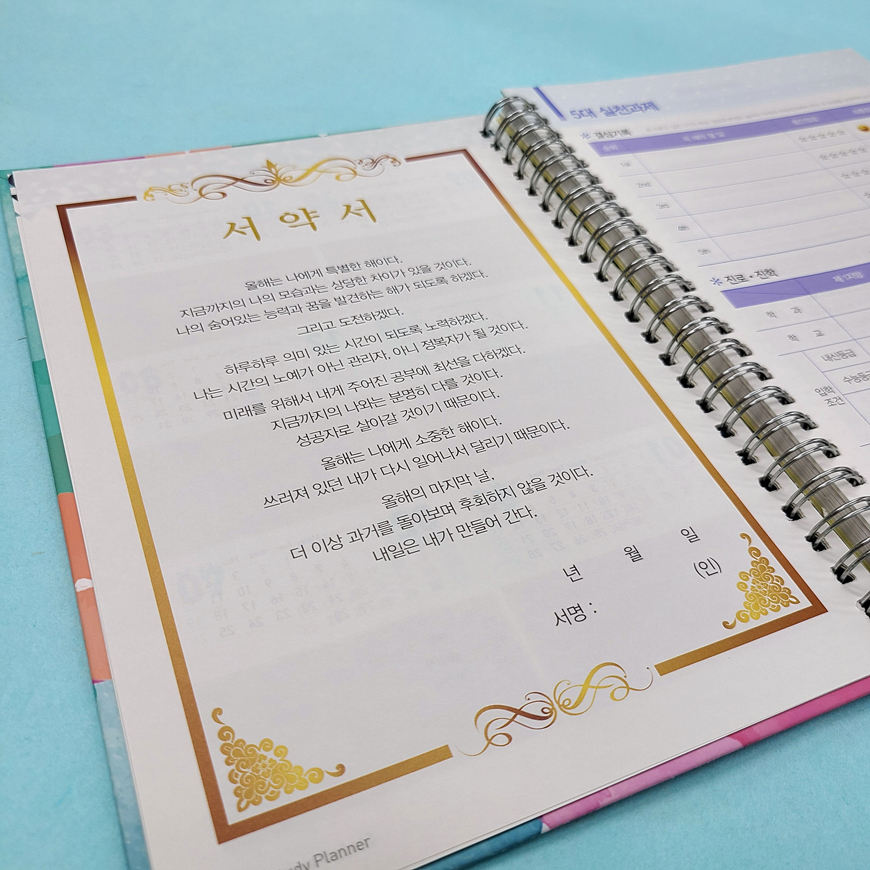 서약서
올해는 나에게 특별한 해이다.
지금까지의 나의 모습과는 상당한 차이가 있을 것이다.
나의 숨어있는 능력과 꿈을 발견하는 해가 되도록 하겠다.
그리고 도전하겠다.
하루하루 의미 있는 시간이 되도록 노력하겠다.
나는 시간의 노예가 아닌 관리자, 아니 정복자가 될 것이다.
미래를 위해서 내게 주어진 공부에 최선을 다하겠다.
지금까지의 나와는 분명히 다를 것이다.
성공자로 살아갈 것이기 때문이다.
올해는 나에게 소중한 해이다.
쓰러져 있던 내가 다시 일어나서 달리기 때문이다.
올해의 마지막 날,
더 이상 과거를 돌아보며 후회하지 않을 것이다.
내일은 내가 만들어 간다.
년 월 일
서명 : (인)
Planner
5대 실천과제
※ 갱상기록
※ 진로·진학
제1지망
학 과
학 교
입학
조건
내신등급